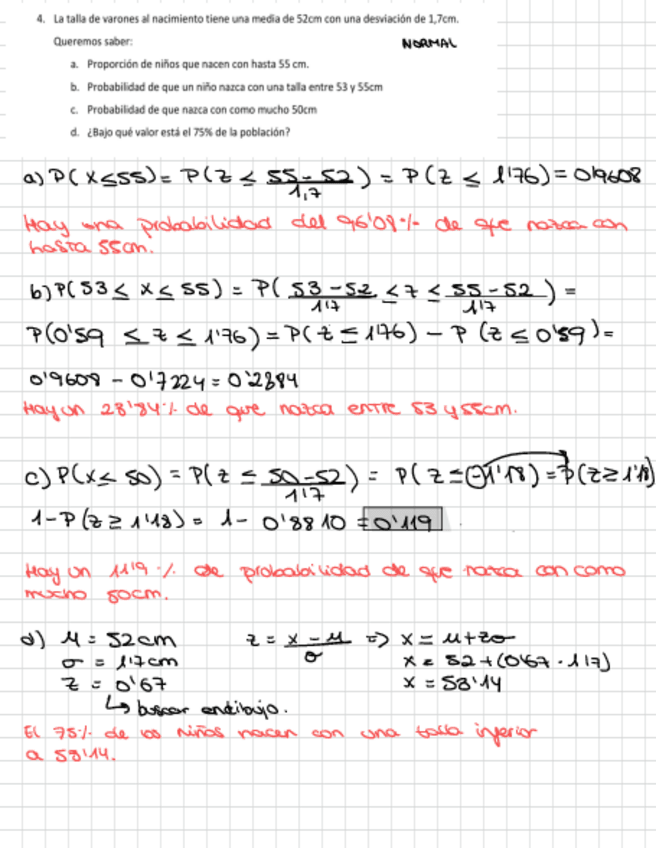 4. La talla de varones al nacimiento tiene una media de 52cm con una desviación de 1,7cm.
Queremos saber:
NORMAL
a. Proporción de niños que nacen con hasta 55 cm.
b. Probabilidad de que un niño nazca con una talla entre 53 y 55cm
c. Probabilidad de que nazca con como mucho 50cm
d. ¿Bajo qué valor está el 75% de la población?
a) P(X≤55) = P(z ≤ (55-52)/1,7) = P(z ≤ 1'76) = 0'9608
Hay una probabilidad del 96'08% de que nazca con
hasta 55cm.
b) P(53 ≤ x ≤ 55) = P((53-52)/1'7 ≤ z ≤ (55-52)/1'7) =
P(0'59 ≤ z ≤ 1'76) = P(z ≤ 1'76) - P(z ≤ 0'59) =
0'9608 - 0'7224 = 0'2384
Hay un 28'84% de que nazca entre 53 y 55cm.
c) P(x ≤ 50) = P(z ≤ (50-52)/1'7) = P(z ≤ -1'18) = P(z ≥ 1'18)
1-P(z ≥ 1'18) = 1- 0'8810 = 0'119
Hay un 11'9% de probabilidad de que nazca con como
mucho 50cm.
d) μ = 52cm z = (x-μ)/σ => x = μ+zσ
σ = 1'7cm x = 52+(0'67·1'7)
z = 0'67 x = 53'14
↳ buscar en dibujo.
El 75% de los niños nacen con una talla inferior
a 53'14.